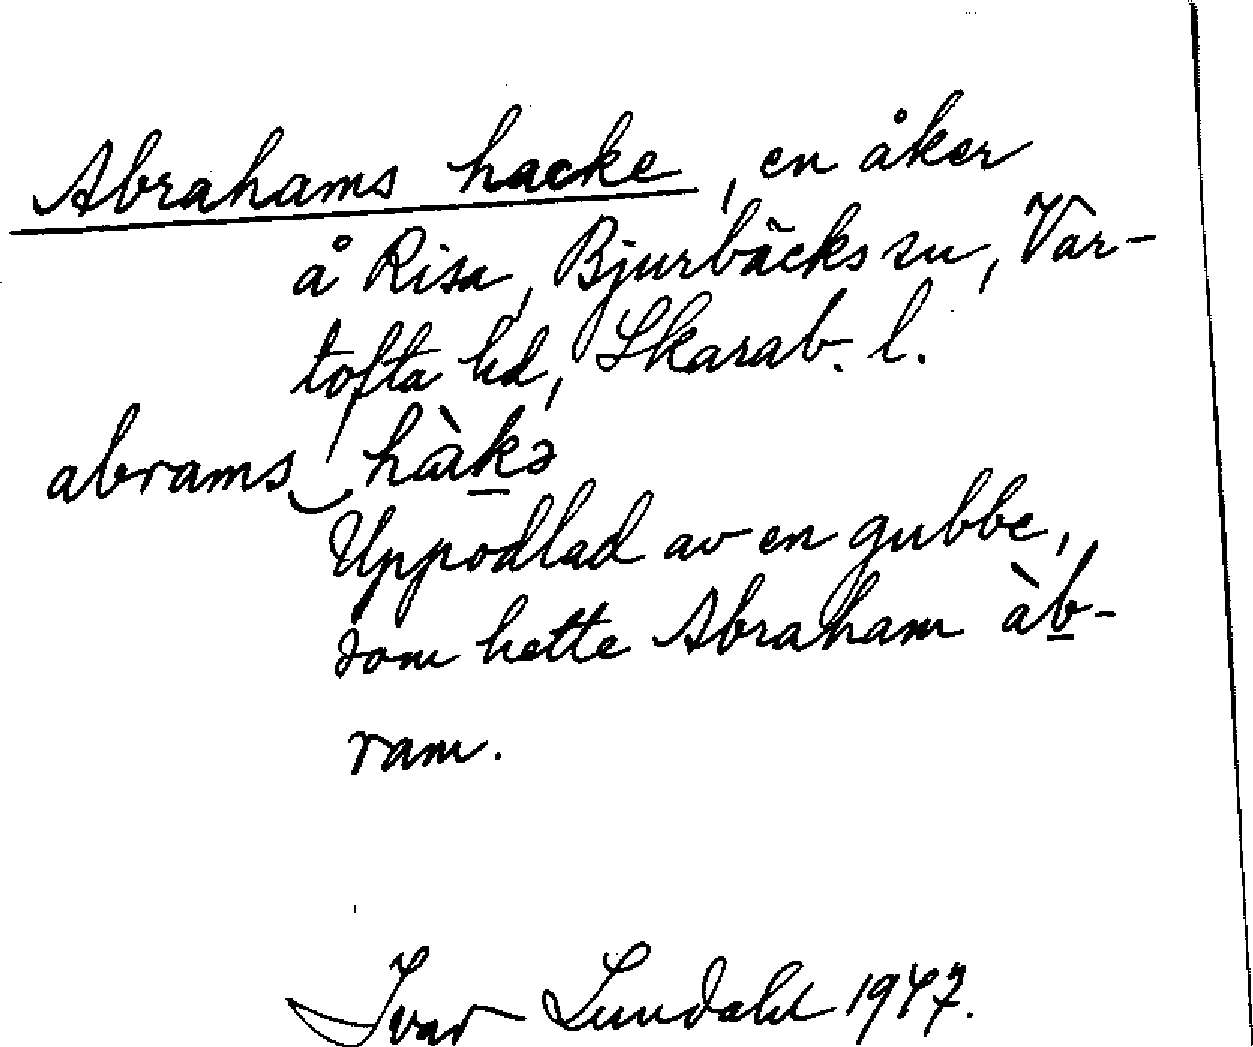 Abrahams hacke, en åker
å Risa, Bjurbäcks sn, Var-
tofta hd, Skarab. l.
abrams‿hàkə
Uppodlad av en gubbe,
som hette Abraham àb-
ram.
Ivar Lundahl 1947.